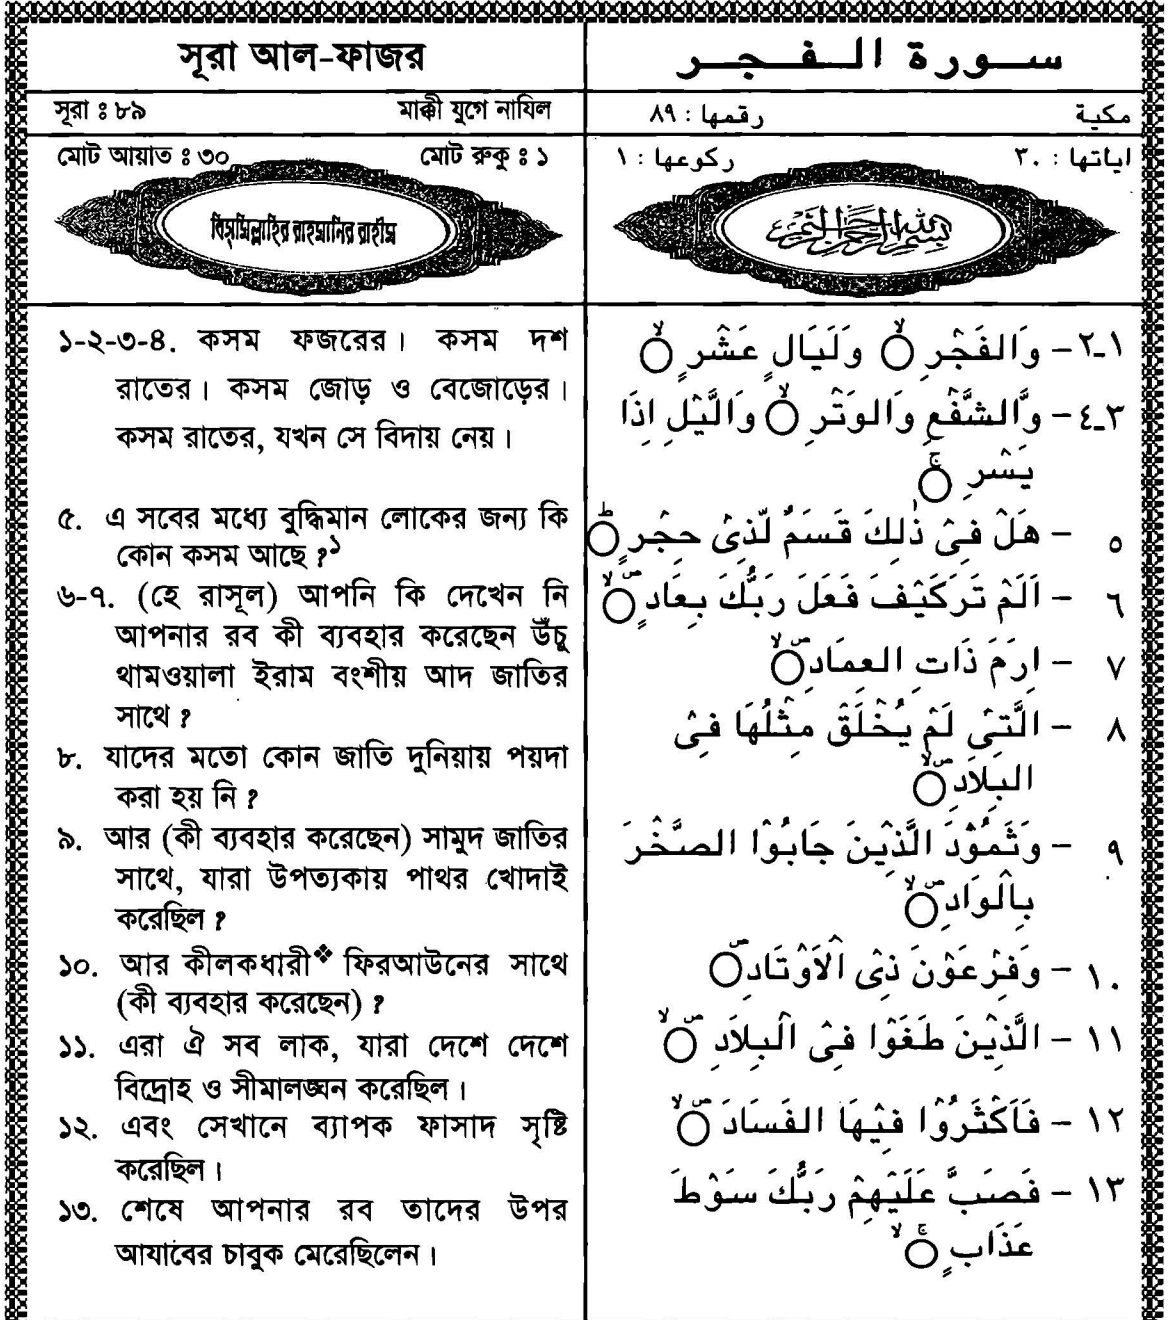 সূরা আল-ফাজর
সূরা ঃ ৮৯ মাক্কী যুগে নাযিল
মোট আয়াত ঃ ৩০ মোট রুকূ ঃ ১
বিস্‌মিল্লাহির রাহমানির রাহীম
১-২-৩-৪. কসম ফজরের। কসম দশ
রাতের। কসম জোড় ও বেজোড়ের।
কসম রাতের, যখন সে বিদায় নেয়।
৫. এ সবের মধ্যে বুদ্ধিমান লোকের জন্য কি
কোন কসম আছে ?১
৬-৭. (হে রাসূল) আপনি কি দেখেন নি
আপনার রব কী ব্যবহার করেছেন উঁচু
থামওয়ালা ইরাম বংশীয় আদ জাতির
সাথে ?
৮. যাদের মতো কোন জাতি দুনিয়ায় পয়দা
করা হয় নি ?
৯. আর (কী ব্যবহার করেছেন) সামুদ জাতির
সাথে, যারা উপত্যকায় পাথর খোদাই
করেছিল ?
১০. আর কীলকধারী❖ ফিরআউনের সাথে
(কী ব্যবহার করেছেন) ?
১১. এরা ঐ সব লাক, যারা দেশে দেশে
বিদ্রোহ ও সীমালঙ্ঘন করেছিল।
১২. এবং সেখানে ব্যাপক ফাসাদ সৃষ্টি
করেছিল।
১৩. শেষে আপনার রব তাদের উপর
আযাবের চাবুক মেরেছিলেন।
سورة الفجر
مكية رقمها : ٨٩
اياتها : ٣٠ ركوعها : ١
بسم الله الرحمن الرحيم
١ـ٢ – وَالفَجْرِ ۙ وَلَيَالٍ عَشْرٍ ۙ
٣ـ٤ – وَّالشَّفْعِ وَالوَتْرِ ۙ وَالَّيْلِ اِذَا
يَسْرِ ۚ
٥ – هَلْ فِىْ ذٰلِكَ قَسَمٌ لِّذِىْ حِجْرٍ ؕ
٦ – اَلَمْ تَرَكَيْفَ فَعَلَ رَبُّكَ بِعَادٍ ۙ
٧ – اِرَمَ ذَاتِ العِمَادِ ۙ
٨ – الَّتِىْ لَمْ يُخْلَقْ مِثْلُهَا فِىْ
البِلاَدِ ۙ
٩ – وَثَمُوْدَ الَّذِيْنَ جَابُوْا الصَّخْرَ
بِالْوَادِ ۙ
١٠ – وَفِرْعَوْنَ ذِى الْاَوْتَادِ ۙ
١١ – الَّذِيْنَ طَغَوْا فِى الْبِلاَدِ ۙ
١٢ – فَاَكْثَرُوْا فِيْهَا الفَسَادَ ۙ
١٣ – فَصَبَّ عَلَيْهِمْ رَبُّكَ سَوْطَ
عَذَابٍ ۚ